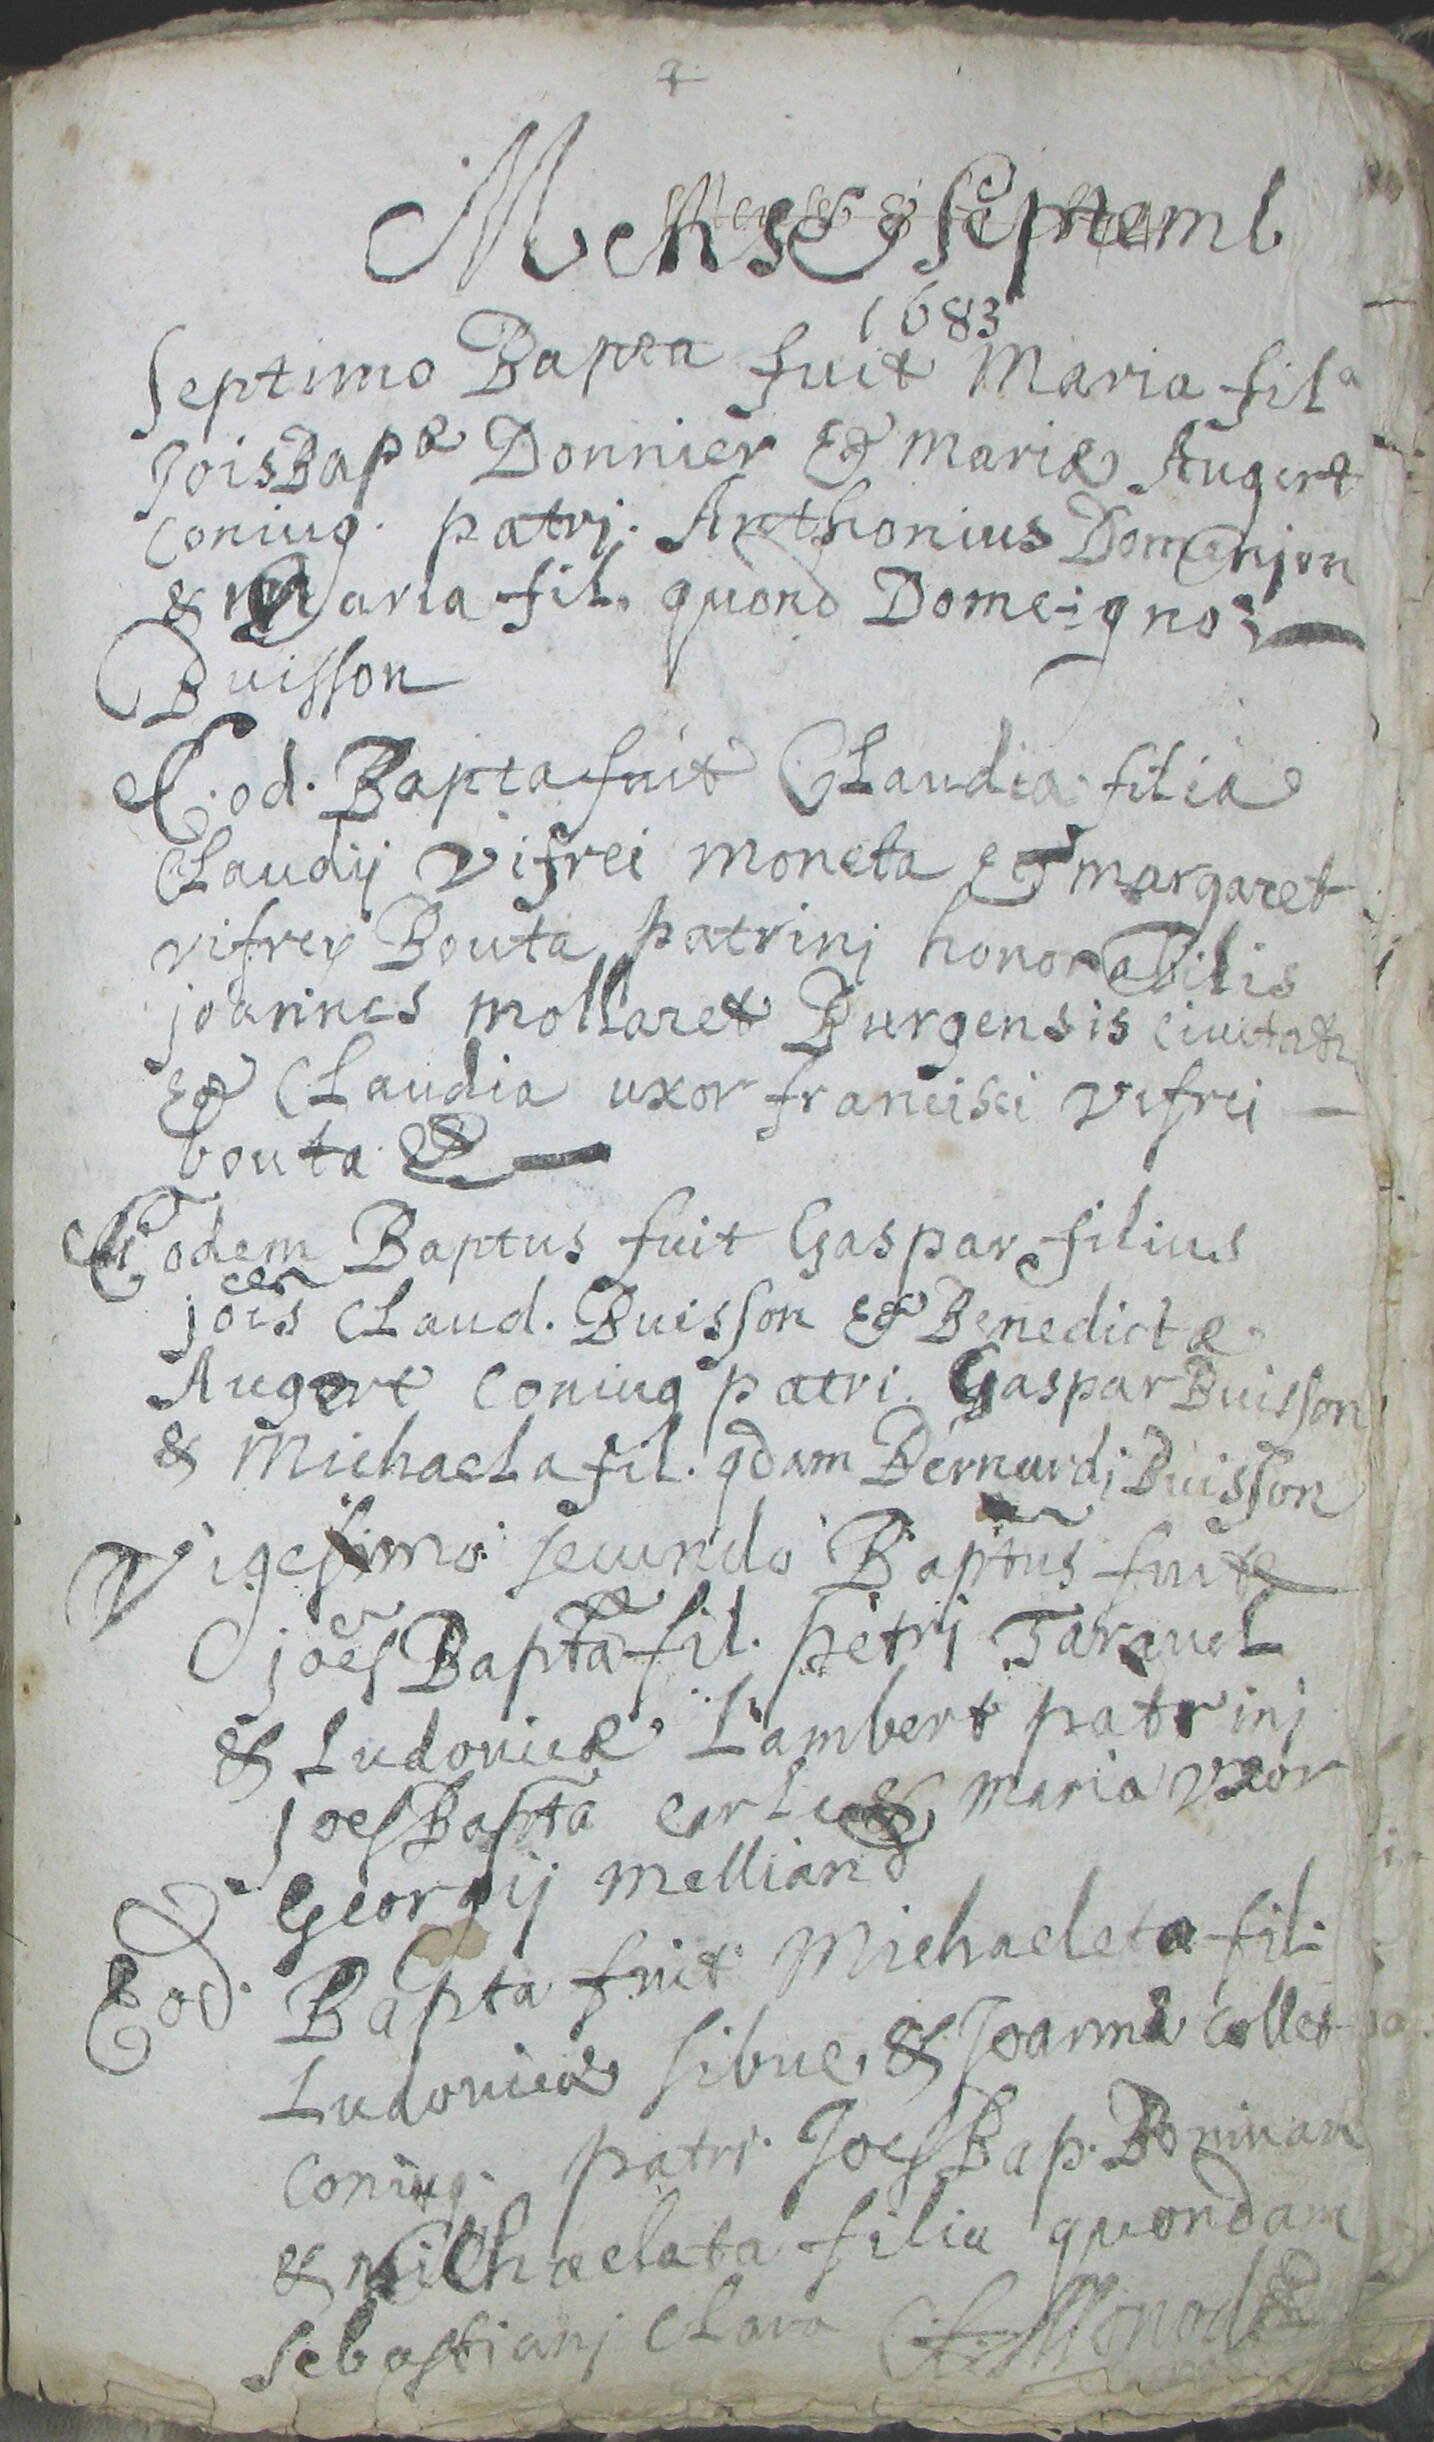 Mense Septemb
1683
Septimo Bapta fuit Maria fil^a
Jois Bap^æ Donnier & mariæ Augert
coniug. patrj. Anthonius Domenjon
& Maria fil. quond Domeigno
Buisson
Eod. Bapta fuit Claudia filia
Claudij vifrei moneta et margaret
vifrey Bouta patrinj honorabilis
joannes mollaret Burgensis
& Claudia uxor francisci vifrei
bouta
Eodem Baptus fuit Gaspar filius
jois Claud. Buisson & Benedictæ
Augert coniug patri. Gaspar Buisson
& Michaela fil. qdam Bernardj Buisson
Vigesimo secundo Baptus fuit
joes Bapta fil. petrj Taravel
& Ludovicæ Lambert patrinj
joes Bapta & maria vxor
Georgij melliand
Eod. Bapta fuit Michaeleta fil.
Ludovici sibue & Joannæ collet
coniug. patrj. Joes Bap. Boniuan
& michaelata filia quondam
sebastianj Clara Monod